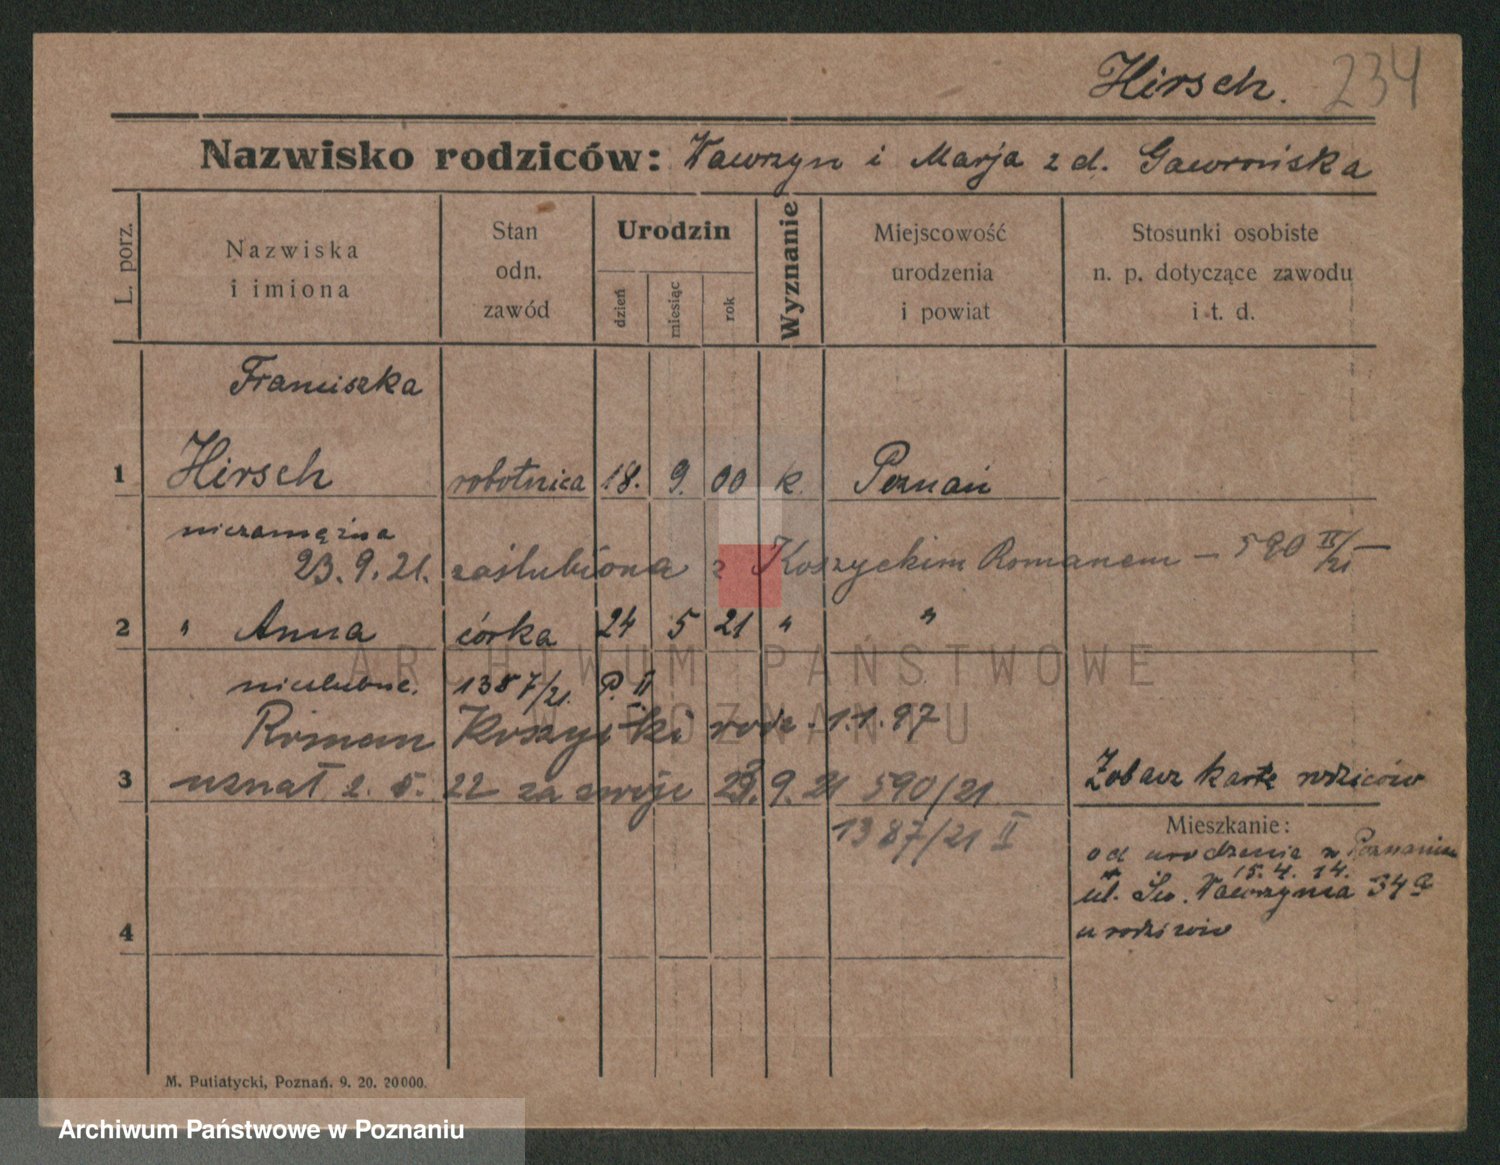 Hirsch. 234
Nazwisko rodziców: Wawrzyn i Marja z d. Gawrońska
L. porz.
Nazwiska
i imiona
Stan
odn.
zawód
Urodzin
dzień
miesiąc
rok
Wyznanie
Miejscowość
urodzenia
i powiat
Stosunki osobiste
n. p. dotyczące zawodu
i t. d.
Franciszka
1 Hirsch robotnica 18. 9. 00 k. Poznań
niezamężna
23.9.21. zaślubiona z Koszyckim Romanem - 590 II/21 -
2 " Anna córka 24 5 21 " "
nieślubne. 1387/21. P. II
Roman Koszycki rodz. 1.1.97
3 uznał 2. 5. 22 za swoje 23.9.21 590/21
1387/21 II
Zobacz kartę rodziców
Mieszkanie:
od urodzenia w Poznaniu
15.4.14.
ul. Św. Wawrzyńca 34a
u rodziców
4
M. Putiatycki, Poznań. 9. 20. 20000.
ARCHIWUM PAŃSTWOWE
W POZNANIU
Archiwum Państwowe w Poznaniu